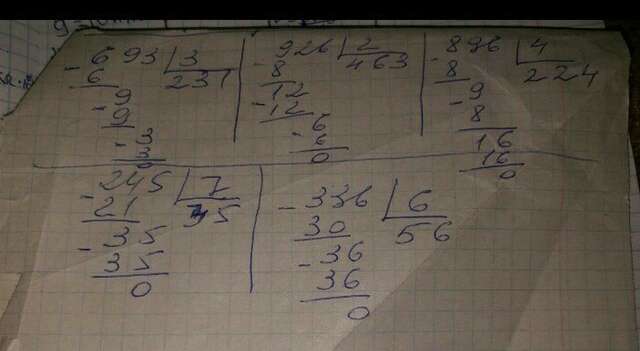 - 693 | 3
6 231
9
- 9
- 3
3
0
- 926 | 2
8 463
12
- 12
- 6
6
0
- 896 | 4
8 224
- 9
8
16
16
0
- 245 | 7
21 35
- 35
35
0
- 336 | 6
30 56
- 36
36
0